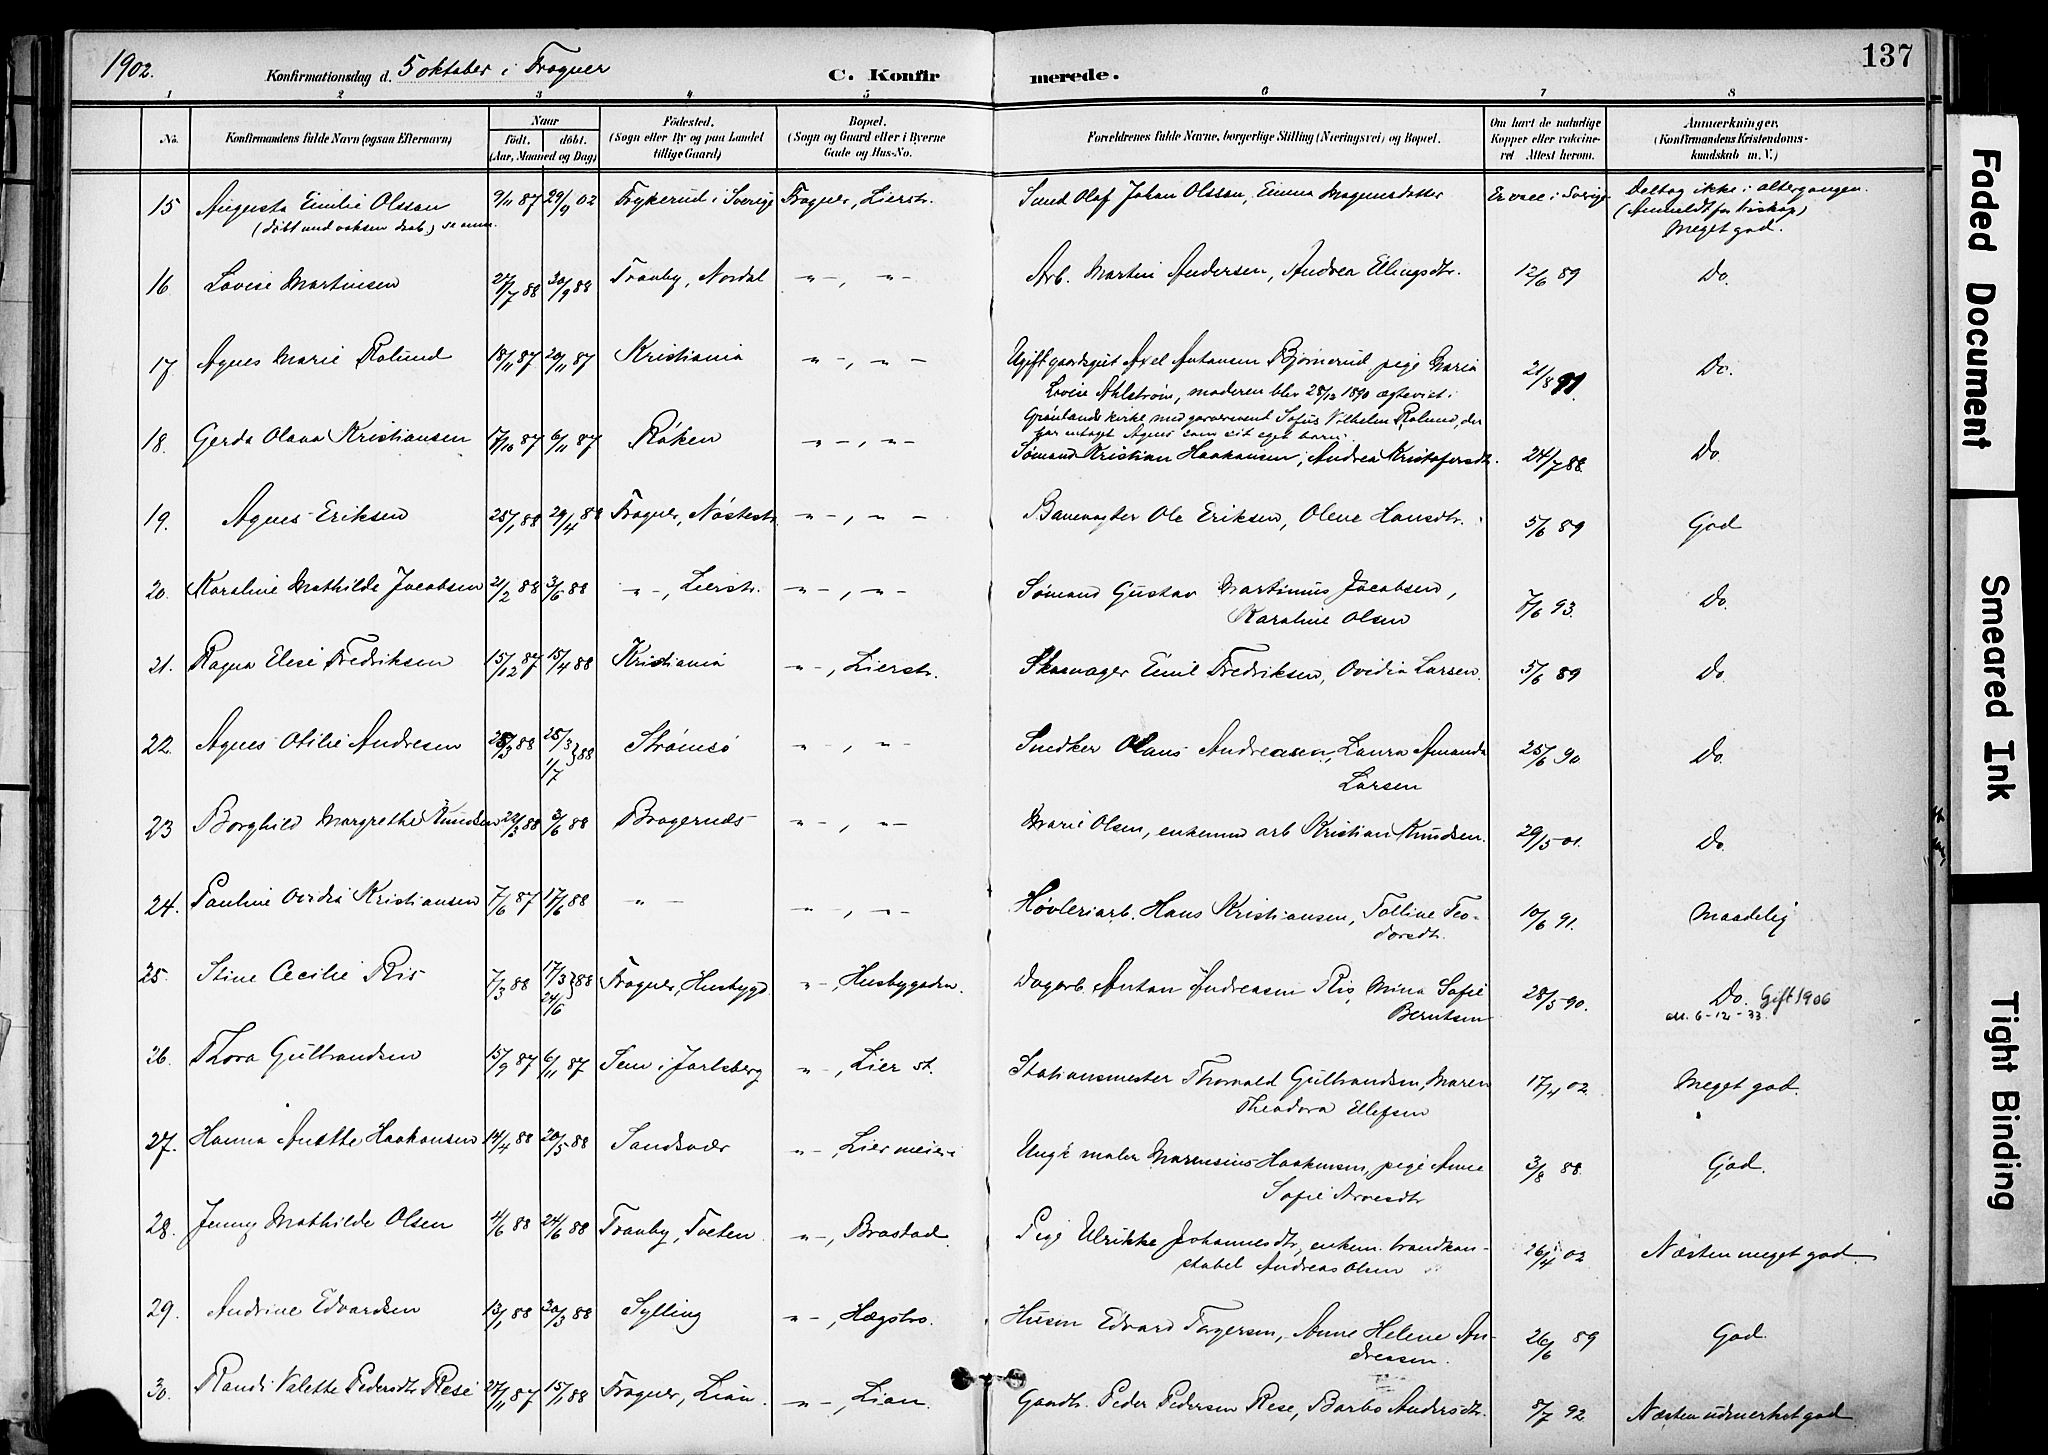 1902. Konfirmationsdag d. 5 oktober i Frogner C. Konfirmerede. 137
1 2 3 4 5 6 7 8
No. Konfirmandens fulde Navn (ogsaa Efternavn) Naar födt. döbt. (Aar, Maaned og Dag) Födested. (Sogn eller By og paa Landet tillige Gaard) Bopæl. (Sogn og Gaard eller i Byerne Gade og Hus-No.) Forældrenes fulde Navne, borgerlige Stilling (Næringsvei) og Bopæl. Om havt de naturlige Kopper eller vaccineret Attest herom. Anmærkninger. (Konfirmandens Kristendomskundskab m. V.)
15 Augusta Emilie Olssen 9/11 87 29/9 02 Frykerud i Sverige Frogner, Lierstr. Smed Olaf Johan Olssen, Emma Magnusdatter Er vacc i Sverige Deltog ikke i altergangen.
(döbt med voksen daab) (Anmeldt for biskop)
Meget god.
16 Lovise Martinsen 27/7 88 30/9 88 Tranby, Nordal -"-, -"- Arb. Martin Andersen, Andrea Ellingsdtr. 12/6 89 Do.
17 Agnes Marie Rolund 18/11 87 20/11 87 Kristiania -"-, -"- Ugift gaardsgut Axel Antonsen Bjørnerud, pige Maria 21/8 91. Do.
Lovise Ahlstrøm, moderen blev 28/12 1890 ægteviet i
Grønlands kirke med garversvend Sofus Vilhelm Rolund, der
har antaget Agnes som sit eget barn.
18. Gerda Olava Kristiansen 17/10 87 6/11 87 Röken -"-, -"- Sömand Kristian Haakansen, Andrea Kristofersdtr. 24/7 88. Do
19. Agnes Eriksen 25/1 88 29/4 88 Frogner, Nöstestr. -"-, -"- Banevogter Ole Eriksen, Olene Hansdtr. 5/6 89 God
20. Karoline Mathilde Jacobsen 21/2 88 3/6 88 -"-, Lierstr. -"-, -"- Sömand Gustav Martinius Jacobsen, 7/6 93. Do.
Karoline Olsen
21. Ragna Elise Fredriksen 15/12 87 15/4 88 Kristiania -"-, Lierstr. Skomager Emil Fredriksen, Ovidia Larsen. 5/6 89 Do.
22. Agnes Otilie Andresen 25/3 88 25/3 1/7 } 88 Strömsö -"-, -"- Snedker Olaus Andreasen, Laura Amanda 25/6 90. Do.
Larsen
23 Borghild Margrethe Knudsen 22/3 88 3/6 88 Bragernæs -"-, -"- Marie Olsen, enkemed arb Kristian Knudsen. 29/5 01. Do.
24. Pauline Ovidia Kristiansen 7/6 87 17/6 88 -"- -"-, -"- Høvleriarb. Hans Kristiansen, Tolline Teo- 10/6 91. Maadelig
dorsdtr.
25. Stine Cecilie Ris 7/3 88 17/3 24/6 } 88 Frogner, Husbygd. -"-, Husbygaden. Dagarb. Anton Andreasen Ris, Mina Sofie 28/5 90. Do. Gift 1906
Berntsen att. 6-12-33.
26. Thora Gulbrandsen 15/9 87 6/11 87 Sem i Jarlsberg -"-, Lier st. Stationsmester Thorvald Gulbrandsen, Maren 17/4 02. Meget god.
Theodora Ellefsen
27. Hanna Anette Haakansen 14/4 88 20/5 88 Sandsvær -"-, Lier meieri Ungk. maler Marensius Haakansen, pige Anne 3/8 88. God.
Sofie Arvesdtr
28. Jenny Mathilde Olsen 4/6 88 24/6 88 Tranby, Tveten. -"-, Brastad. Pige Ulrikke Johannesdtr, enkem. brandkon- 26/4 02 Næsten meget god.
stabel Andreas Olsen
29. Andrine Edvardsen 13/1 88 30/3 88 Sylling -"-, Hægsbro. Husm Edvard Torgersen, Anne Helene An- 26/6 89 God.
dreasen.
30. Randi Valette Pedersdtr Rese 27/11 87 15/1 88 Frogner, Lian. -"-, Lian. Gaardbr. Peder Pedersen Rese, Barbo Andersdtr. 8/7 92. Næsten udmerket god
Faded Document
Smeared Ink
Tight Binding